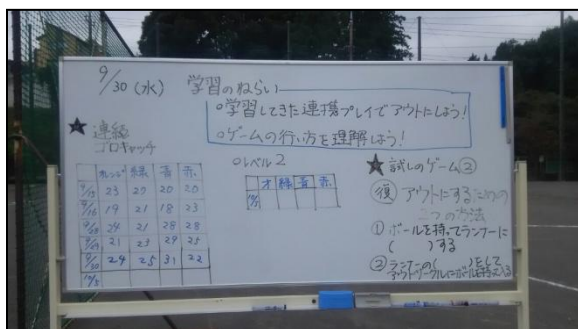 9/30 (水) 学習のねらい
○学習してきた連携プレイでアウトにしよう!
○ゲームの行い方を理解しよう!
★ 連続
ゴロキャッチ
オレンジ 緑 青 赤
9/15 23 27 20 20
9/16 19 21 18 23
24 21 28 28
21 23 29 25
9/30 24 25 31 22
○レベル2
オ 緑 青 赤
★ 試しのゲーム②
復 アウトにするための
二つの方法
① ボールを持ってランナーに
( )する
② ランナーの( )をして
アウトサークルにボールを持って入る